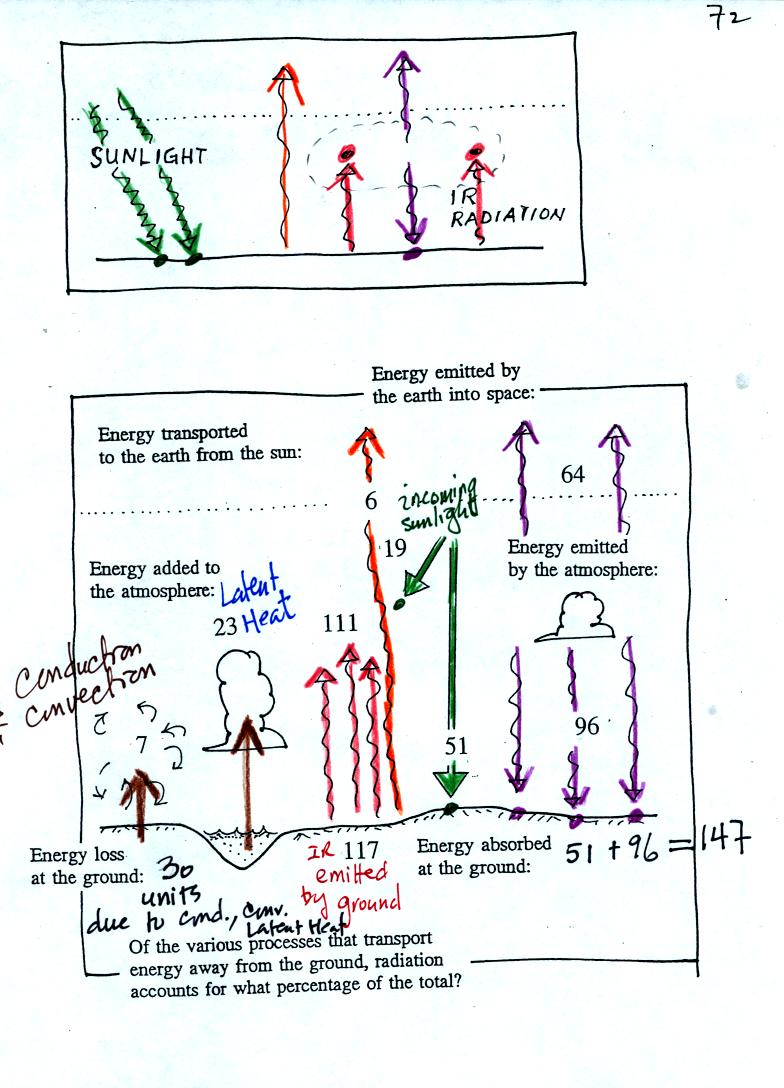 72
SUNLIGHT
IR
RADIATION
Energy emitted by
the earth into space:
Energy transported
to the earth from the sun:
6
incoming
sunlight
64
19
Energy emitted
by the atmosphere:
Energy added to
the atmosphere:
Latent
Heat
23
111
Conduction
convection
7
51
96
Energy loss
at the ground:
30
units
due to cond., conv.
Latent Heat
IR 117
emitted
by ground
Energy absorbed
at the ground:
51 + 96 = 147
Of the various processes that transport
energy away from the ground, radiation
accounts for what percentage of the total?